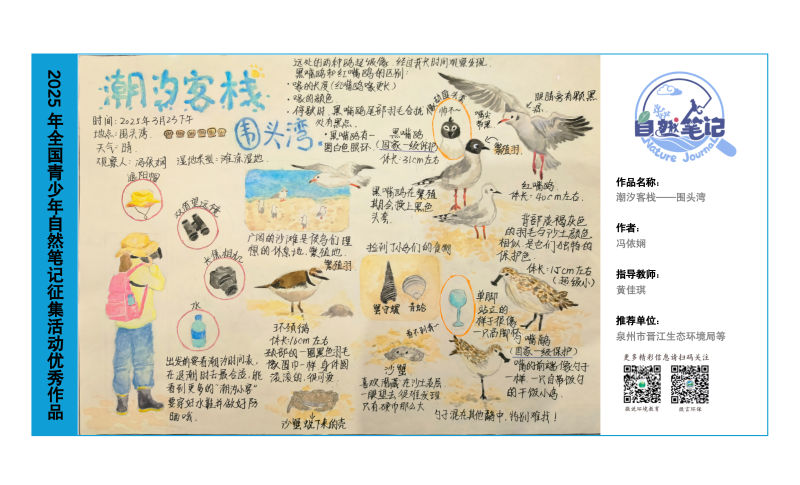 2025 年全国青少年自然笔记征集活动优秀作品
潮汐客栈
围头湾
时间：2025年3月23下午
地点：围头湾.
天气：晴.
观察人：冯依娴 湿地类型：滩涂湿地.
远处的两种鸥超级像,经过好长时间观察发现.
黑嘴鸥和红嘴鸥的区别：
·喙的长度(红嘴鸥喙更长)
·喙的颜色
·停歇时,黑嘴鸥尾部羽毛合拢
处有黑点.
·黑嘴鸥有一
圈白色眼环.
黑嘴鸥
(国家一级保护)
体长：31cm左右
嘴尖
带黑
眼睛旁有颗黑
繁殖羽
红嘴鸥
体长：40cm左右.
黑嘴鸥在繁殖
期会换上黑色
头套.
背部浅褐灰色
的羽毛和沙土颜色
相似是它们独特的
保护色.
体长：15cm左右
(超级小)
遮阳帽
双筒望远镜
长焦相机
水
出发前要看潮汐时间表,
在退潮时去最合适,能
看到更多的"潮汐小客"
要穿好水鞋并做好防
晒哦.
广阔的沙滩是候鸟们理
想的休息地、繁殖地.
繁殖羽
环颈鸻
体长：16cm左右
颈部的一圈黑色羽毛
像围巾一样 身体圆
滚滚的,很可爱.
沙蟹蜕下来的壳
捡到了小鸟们的食物
青蛤
看不到我~
沙蟹
喜欢潜藏在沙土表层.
一眼望去很难发现
只有硬币那么大
单脚
站立的
样子很像
一只高脚杯
勺嘴鹬
(国家一级保护)
嘴的前端像勺子
一样.一只自带饭勺
的干饭小鸟.
勺子混在其他鹬中,特别难找！
自然笔记
Nature Journal
作品名称：
潮汐客栈——围头湾
作者：
冯依娴
指导教师：
黄佳琪
推荐单位：
泉州市晋江生态环境局等
更多精彩信息请扫码关注
微说环境教育
微言环保